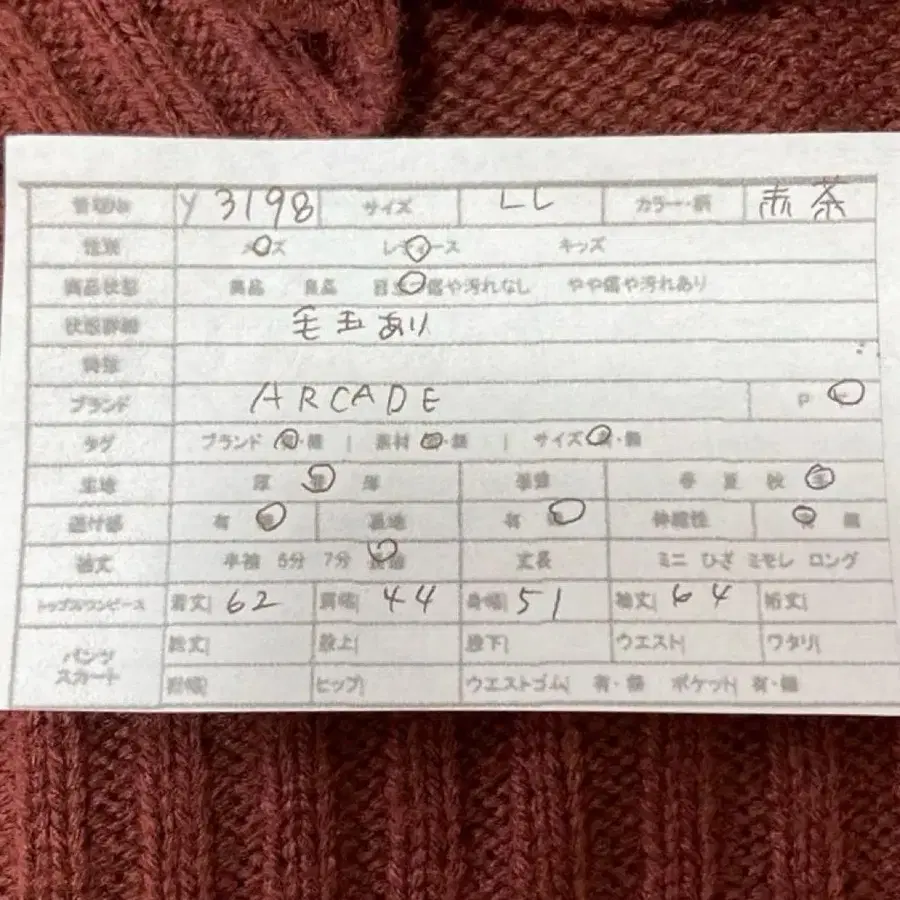 管理No Y 3198 サイズ LL カラー・柄 赤茶
性別 メンズ レディース キッズ
商品状態 美品 良品 目立つ傷や汚れなし やや傷や汚れあり
状態詳細 毛玉あり
特徴
ブランド ARCADE P
タグ ブランド 有・無 | 素材 有・無 | サイズ 有・無
生地 厚 普 薄 季節 春 夏 秋 冬
裏地 有 伸縮性 有 無
袖丈 半袖 5分 7分 長袖 丈長 ミニ ひざ ミモレ ロング
トップス/ワンピース 着丈| 62 肩幅| 44 身幅| 51 袖丈| 64 裄丈|
パンツ 総丈| 股上| 股下| ウエスト| ワタリ|
スカート 裾幅| ヒップ| ウエストゴム| 有・無 ポケット| 有・無